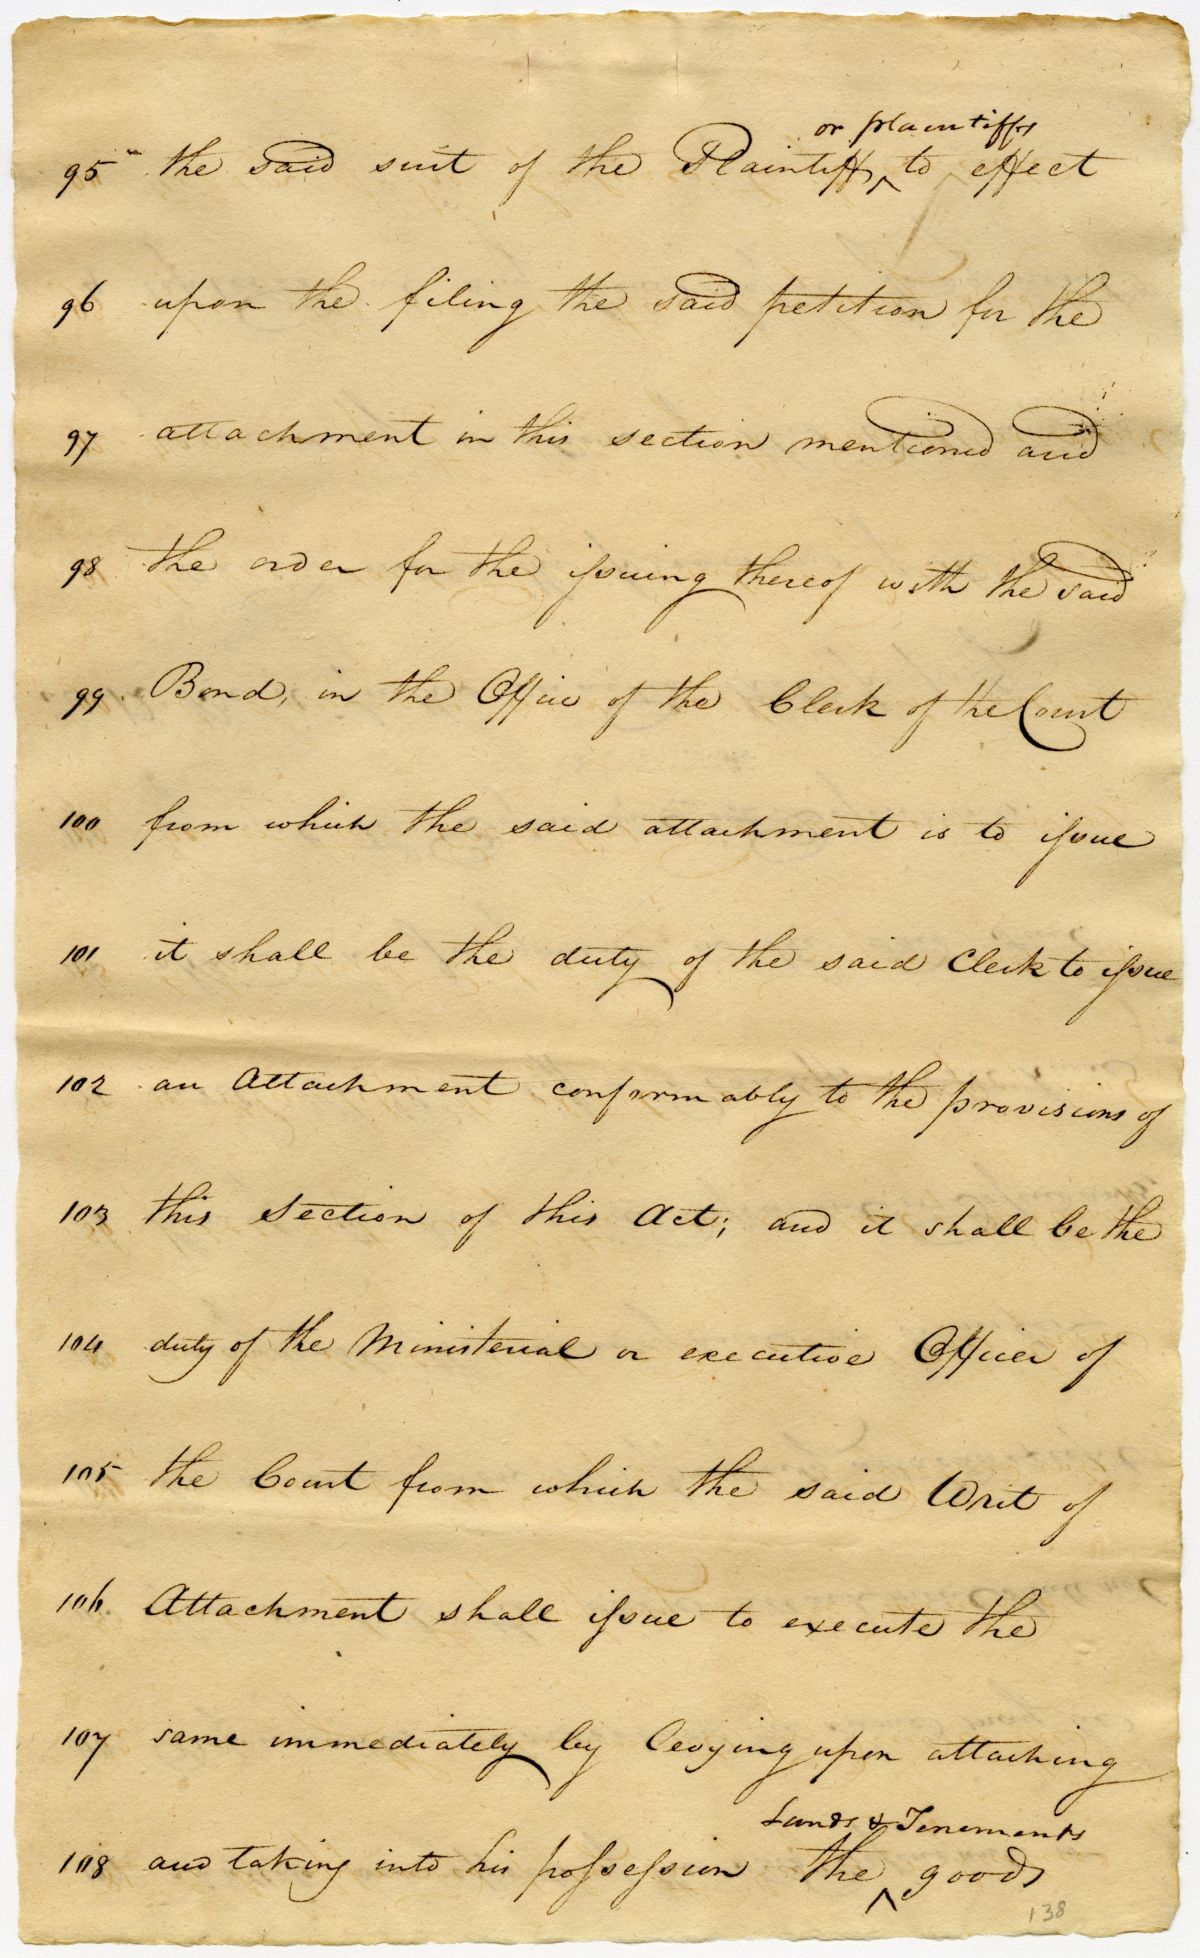 or plaintiffs
95 the said suit of the Plaintiff, ^ to effect
96 upon the filing the said petition for the
97 attachment in this section mentioned and
98 the order for the issuing thereof with the said
99 Bond, in the Office of the Clerk of the Court
100 from which the said attachment is to issue
101 it shall be the duty of the said Clerk to issue
102 an Attachment conformably to the provisions of
103 this Section of this Act; and it shall be the
104 duty of the Ministerial or executive Officer of
105 the Court from which the said Writ of
106 Attachment shall issue to execute the
107 same immediately by levying upon attaching
Lands & Tenements
108 and taking into his possession the ^ goods
138